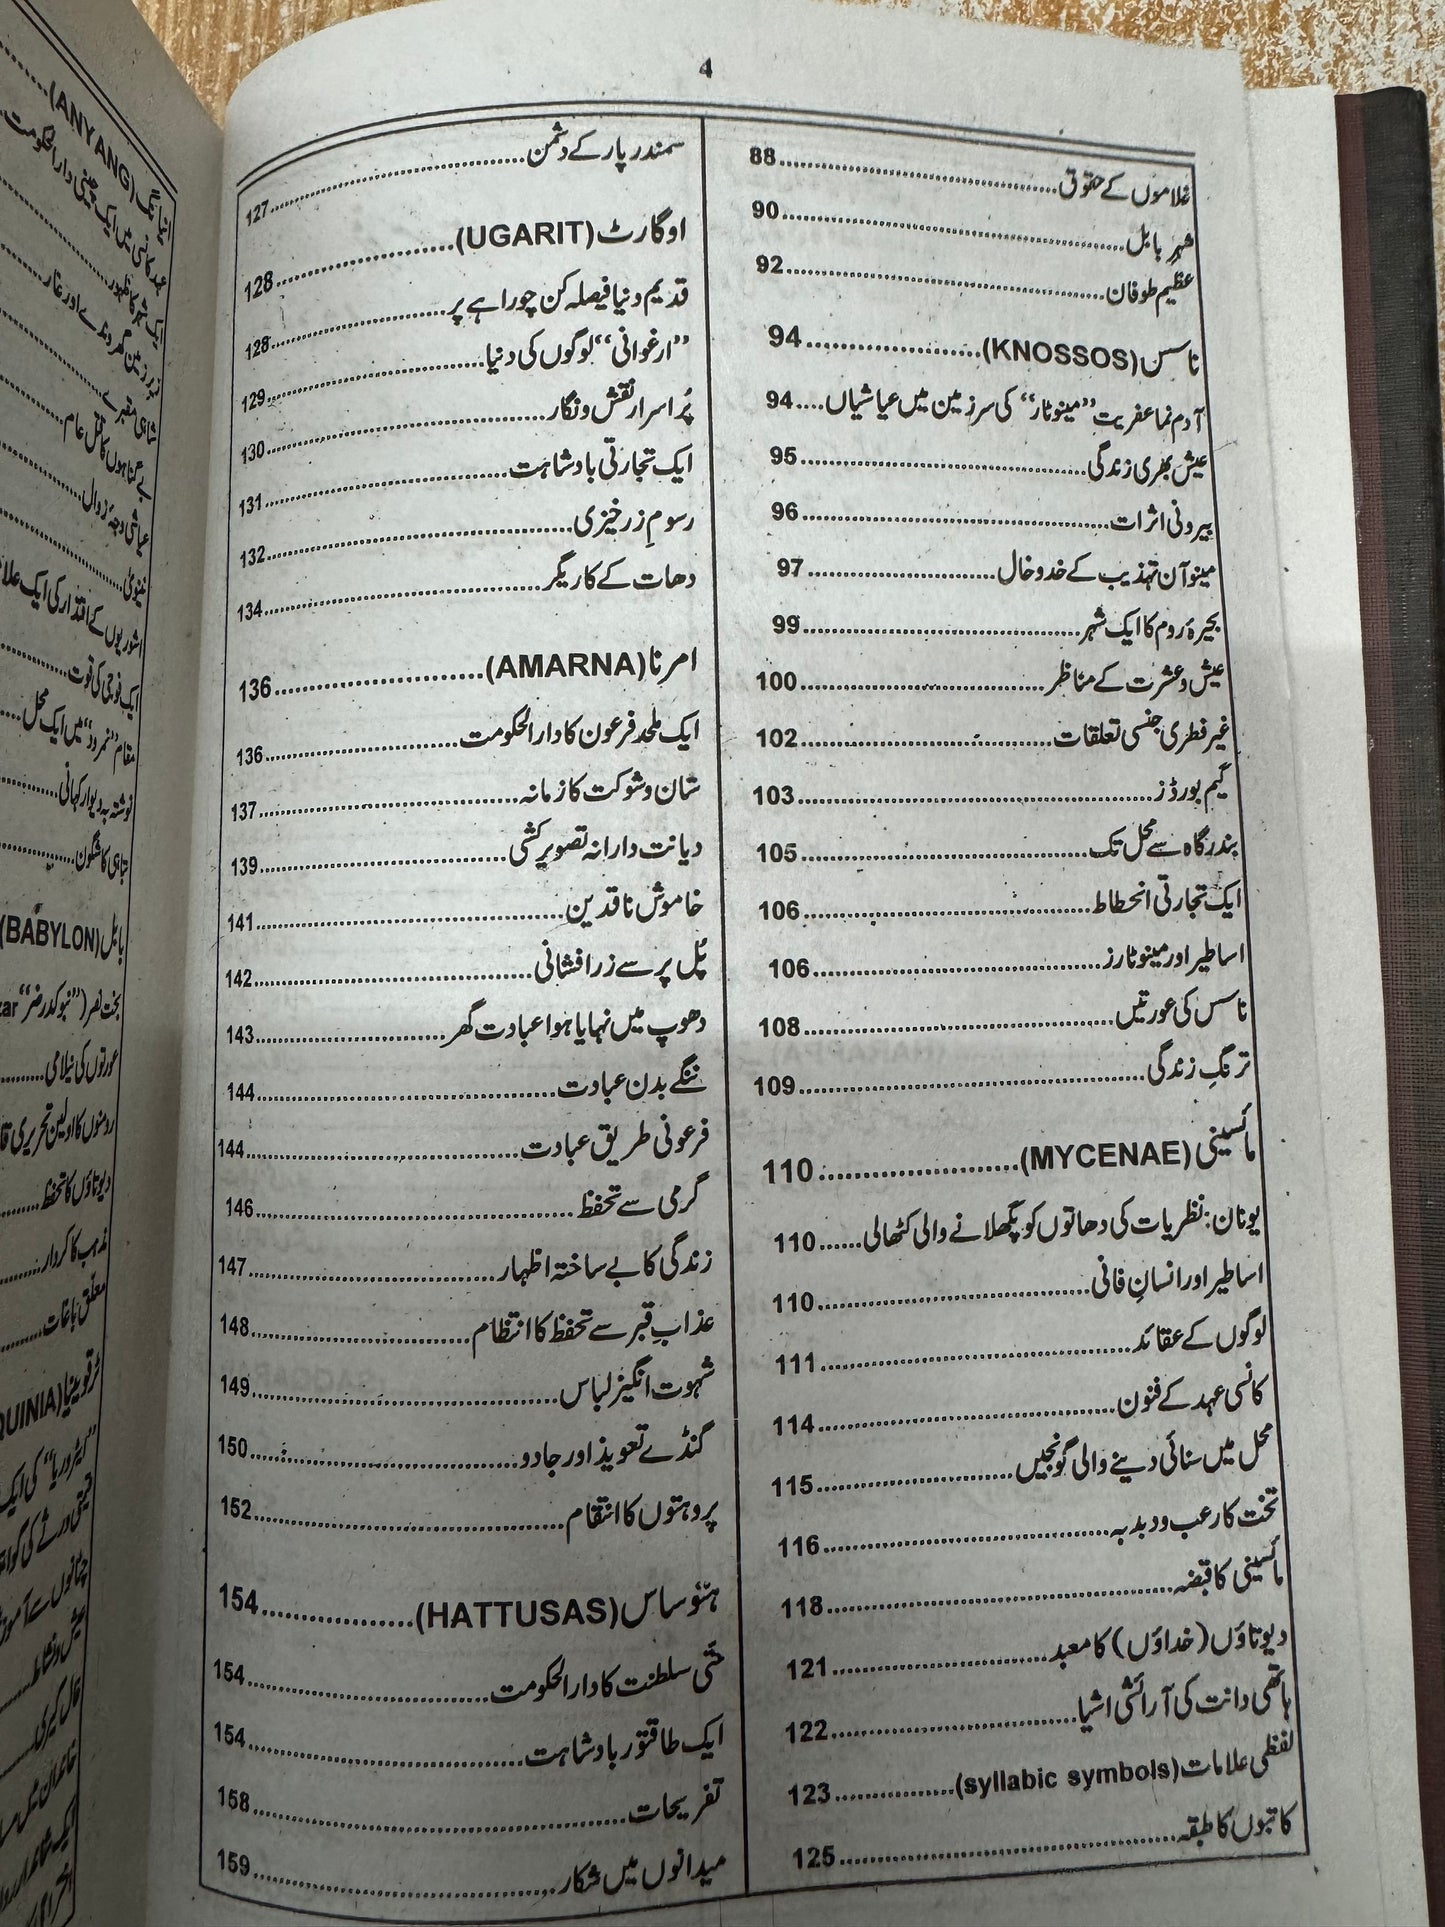 4
غلاموں کے حقوق 88
شہرِ بابل 90
عظیم طوفان 92
ناسس (KNOSSOS) 94
آدم نما عفریت ”مینوٹار“ کی سرزمین میں عیاشیاں 94
عیش بھری زندگی 95
بیرونی اثرات 96
مینوآن تہذیب کے خدوخال 97
بحیرۂ روم کا ایک شہر 99
عیش و عشرت کے مناظر 100
غیر فطری جنسی تعلقات 102
گیم بورڈز 103
بندرگاہ سے محل تک 105
ایک تجارتی انحطاط 106
اساطیر اور مینوٹارز 106
ناسس کی عورتیں 108
ترنگِ زندگی 109
مائسینی (MYCENAE) 110
یونان: نظریات کی دھاتوں کو پگھلانے والی کٹھالی 110
اساطیر اور انسانِ فانی 110
لوگوں کے عقائد 111
کانسی عہد کے فنون 114
محل میں سنائی دینے والی گونجیں 115
تخت کا رعب و دبدبہ 116
مائسینی کا قبضہ 118
دیوتاؤں (خداؤں) کا معبد 121
ہاتھی دانت کی آرائشی اشیا 122
لفظی علامات (syllabic symbols) 123
کاتبوں کا طبقہ 125
سمندر پار کے دشمن 127
اوگارٹ (UGARIT) 128
قدیم دنیا فیصلہ کن چوراہے پر 128
”ارغوانی“ لوگوں کی دنیا 129
پُراسرار نقش و نگار 130
ایک تجارتی بادشاہت 131
رسومِ زرخیزی 132
دھات کے کاریگر 134
امرنا (AMARNA) 136
ایک ملحد فرعون کا دارالحکومت 136
شان و شوکت کا زمانہ 137
دیانت دارانہ تصویر کشی 139
خاموش ناقدین 141
پُل پر سے زرافشانی 142
دھوپ میں نہایا ہوا عبادت گھر 143
ننگے بدن عبادت 144
فرعونی طریق عبادت 144
گرمی سے تحفظ 146
زندگی کا بے ساختہ اظہار 147
عذابِ قبر سے تحفظ کا انتظام 148
شہوت انگیز لباس 149
گنڈے تعویذ اور جادو 150
پروہتوں کا انتقام 152
ہتوساس (HATTUSAS) 154
حتّی سلطنت کا دارالحکومت 154
ایک طاقتور بادشاہت 154
تفریحات 158
میدانوں میں شکار 159
(ANYANG)
ایک شہر کا ظہور
شاہی مقبرے
بے گناہوں کا قتل عام
عیاشی وجۂ زوال
نینویٰ
ایک فوجی کی قوت
مقام ”نمرود“ میں ایک محل
نوشتہ بہ دیوار کہانی
تباہی کا شگون
بابل (BABYLON)
عورتوں کی نیلامی
دیوتاؤں کا تحفظ
مذہب کا کردار
معلق باغات
عیش و نشاط